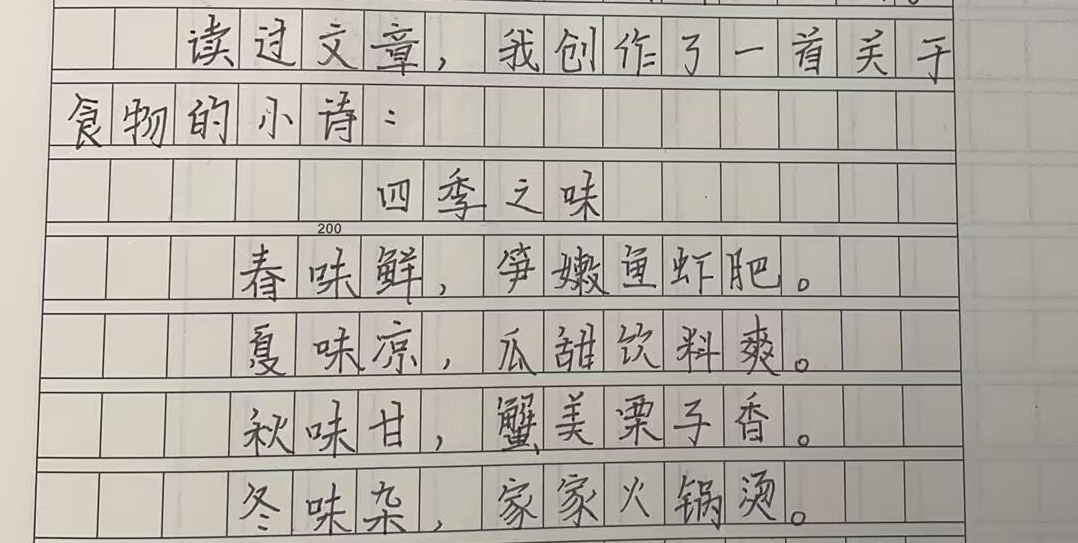 读过文章，我创作了一首关于
食物的小诗：
四季之味
200
春味鲜，笋嫩鱼虾肥。
夏味凉，瓜甜饮料爽。
秋味甘，蟹美栗子香。
冬味杂，家家火锅烫。